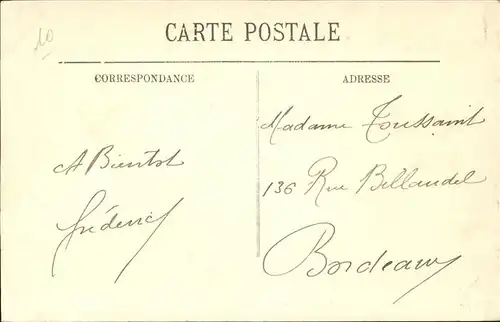 10
CARTE POSTALE
CORRESPONDANCE
A Bientot
Frédéric
ADRESSE
Madame Toussaint
136 Rue Bellandel
Bordeaux